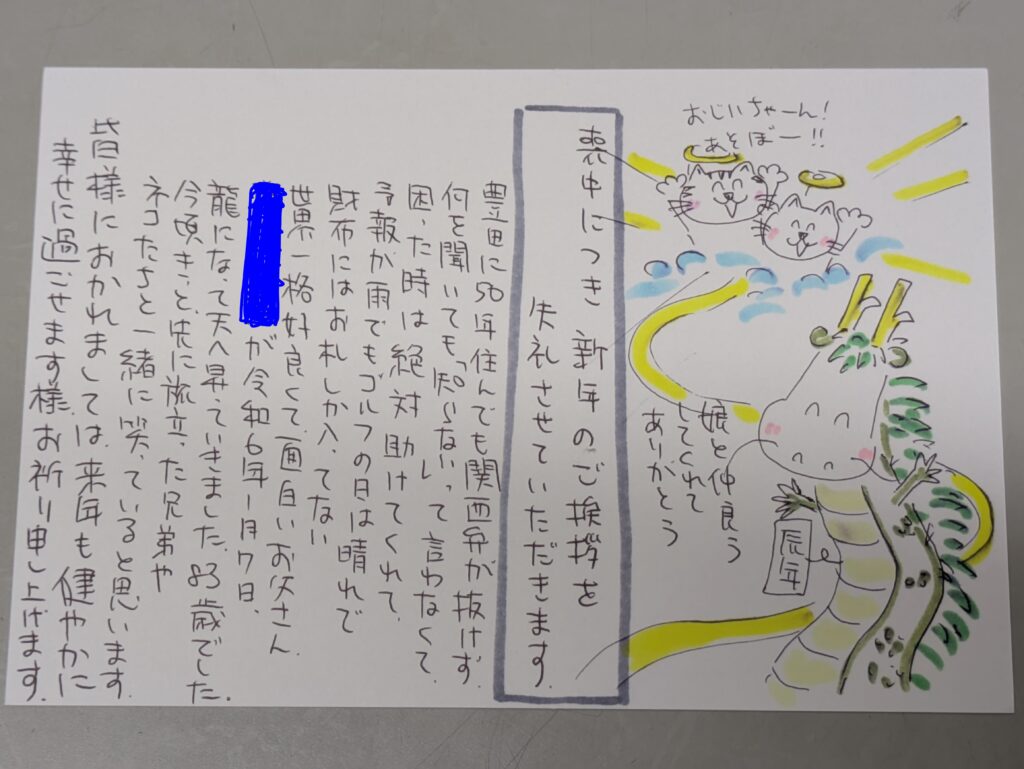 おじいちゃーん!
あそぼー!!
娘と仲良う
してくれて
ありがとう
辰年
喪中につき 新年のご挨拶を
失礼させていただきます。
豊田に50年住んでも関西弁が抜けず、
何を聞いても「知らない」って言わなくて、
困った時は絶対助けてくれて、
予報が雨でもゴルフの日は晴れで
財布にはお札しか入ってない
世界一格好良くて、面白いお父さん、
が令和6年1月7日、
龍になって天へ昇っていきました。83歳でした。
今頃きっと、先に旅立った兄弟や
ネコたちと一緒に笑っていると思います。
皆様におかれましては、来年も健やかに
幸せに過ごせます様、お祈り申し上げます。